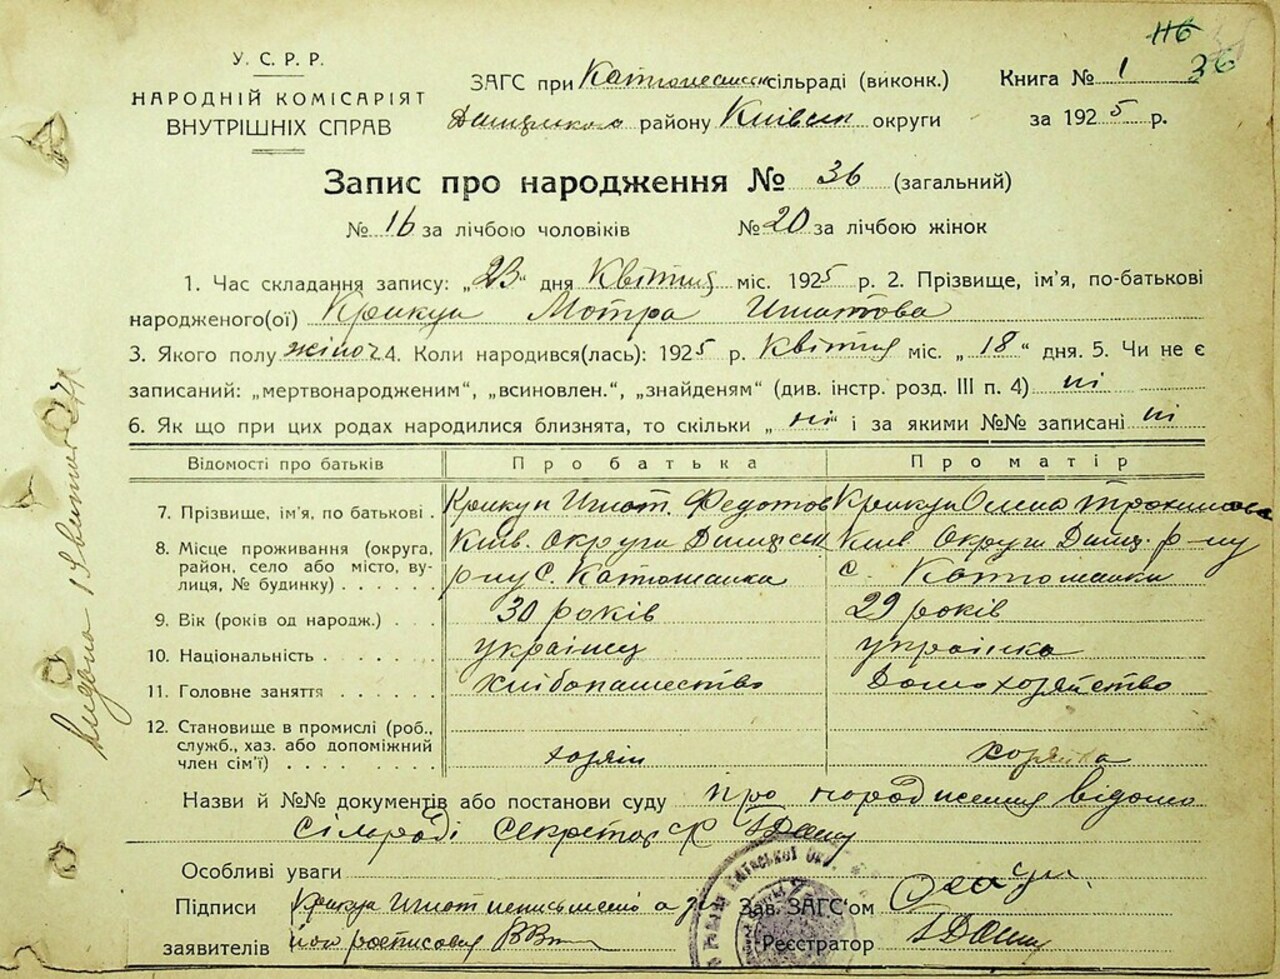 116
36
У. С. Р. Р.
НАРОДНІЙ КОМІСАРІЯТ
ВНУТРІШНІХ СПРАВ
ЗАГС при сільраді (виконк.)
району Київськ округи
Книга № 1
за 1925 р.
Запис про народження № 36 (загальний)
№ 16 за лічбою чоловіків № 20 за лічбою жінок
1. Час складання запису: „23“ дня Квітня міс. 1925 р. 2. Прізвище, ім'я, по-батькові
народженого(ої) Крикун Мотра Игнатова
3. Якого полу жіноч 4. Коли народився(лась): 1925 р. Квітня міс. „18“ дня. 5. Чи не є
записаний: „мертвонародженим“, „всиновлен.“, „знайденям“ (див. інстр. розд. III п. 4) ні
6. Як що при цих родах народилися близнята, то скільки „ні“ і за якими №№ записані ні
Відомості про батьків Про батька Про матір
7. Прізвище, ім'я, по батькові . Крикун Игнат. Федотов Крикун Олена
8. Місце проживання (округа, район, село або місто, вулиця, № будинку) . . . . . Київ. Округи р-ну С. Катюжанка Київ Округи Дымер. р-ну с. Катюжанки
9. Вік (років од народж.) . . . 30 років 29 років
10. Національність . . . . . . українец українка
11. Головне заняття . . . . . . хлібопашество Домохозяйство
12. Становище в промислі (роб., служб., хаз. або допоміжний член сім'ї) . . . . . . . . хозяін хозяйка
Назви й №№ документів або постанови суду про народження відомо
Сільраді Секретар
Особливі уваги
Підписи Крикун Игнат неписьмено а за
заявителів його росписовся
Зав. ЗАГС'ом
Реєстратор
Київської Окр.
Видана